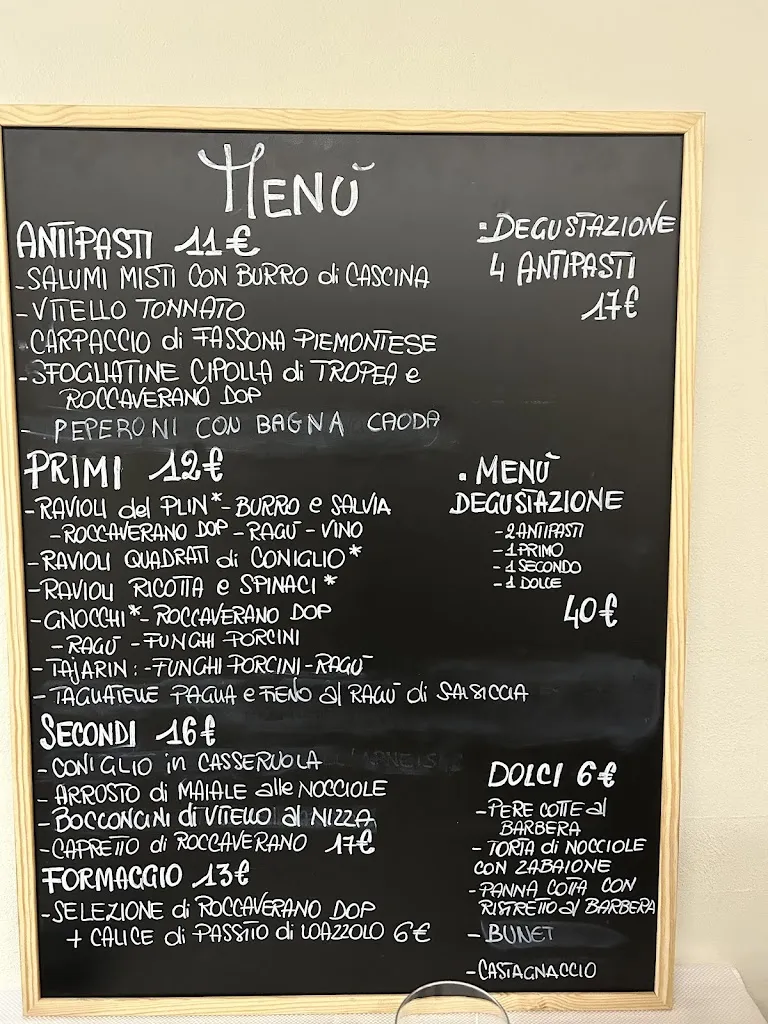 MENÙ
ANTIPASTI 11€
- SALUMI MISTI CON BURRO di CASCINA
- VITELLO TONNATO
- CARPACCIO di FASSONA PIEMONTESE
- SFOGLIATINE CIPOLLA di TROPEA e
ROCCAVERANO DOP
- PEPERONI CON BAGNA CAODA
· DEGUSTAZIONE
4 ANTIPASTI
17€
PRIMI 12€
- RAVIOLI del PLIN* - BURRO e SALVIA
- ROCCAVERANO DOP - RAGÙ - VINO
- RAVIOLI QUADRATI di CONIGLIO*
- RAVIOLI RICOTTA e SPINACI*
- GNOCCHI* - ROCCAVERANO DOP
- RAGÙ - FUNGHI PORCINI
- TAJARIN: - FUNGHI PORCINI - RAGÙ
- TAGLIATELLE PAGLIA e FIENO al RAGÙ di SALSICCIA
· MENÙ
DEGUSTAZIONE
- 2 ANTIPASTI
- 1 PRIMO
- 1 SECONDO
- 1 DOLCE
40€
SECONDI 16€
- CONIGLIO in CASSERUOLA
- ARROSTO di MAIALE alle NOCCIOLE
- BOCCONCINI di VITELLO al NIZZA
- CAPRETTO di ROCCAVERANO 17€
FORMAGGIO 13€
- SELEZIONE di ROCCAVERANO DOP
+ CALICE di PASSITO di LOAZZOLO 6€
DOLCI 6€
- PERE COTTE al
BARBERA
- TORTA di NOCCIOLE
CON ZABAIONE
- PANNA COTTA CON
RISTRETTO al BARBERA
- BUNET
- CASTAGNACCIO